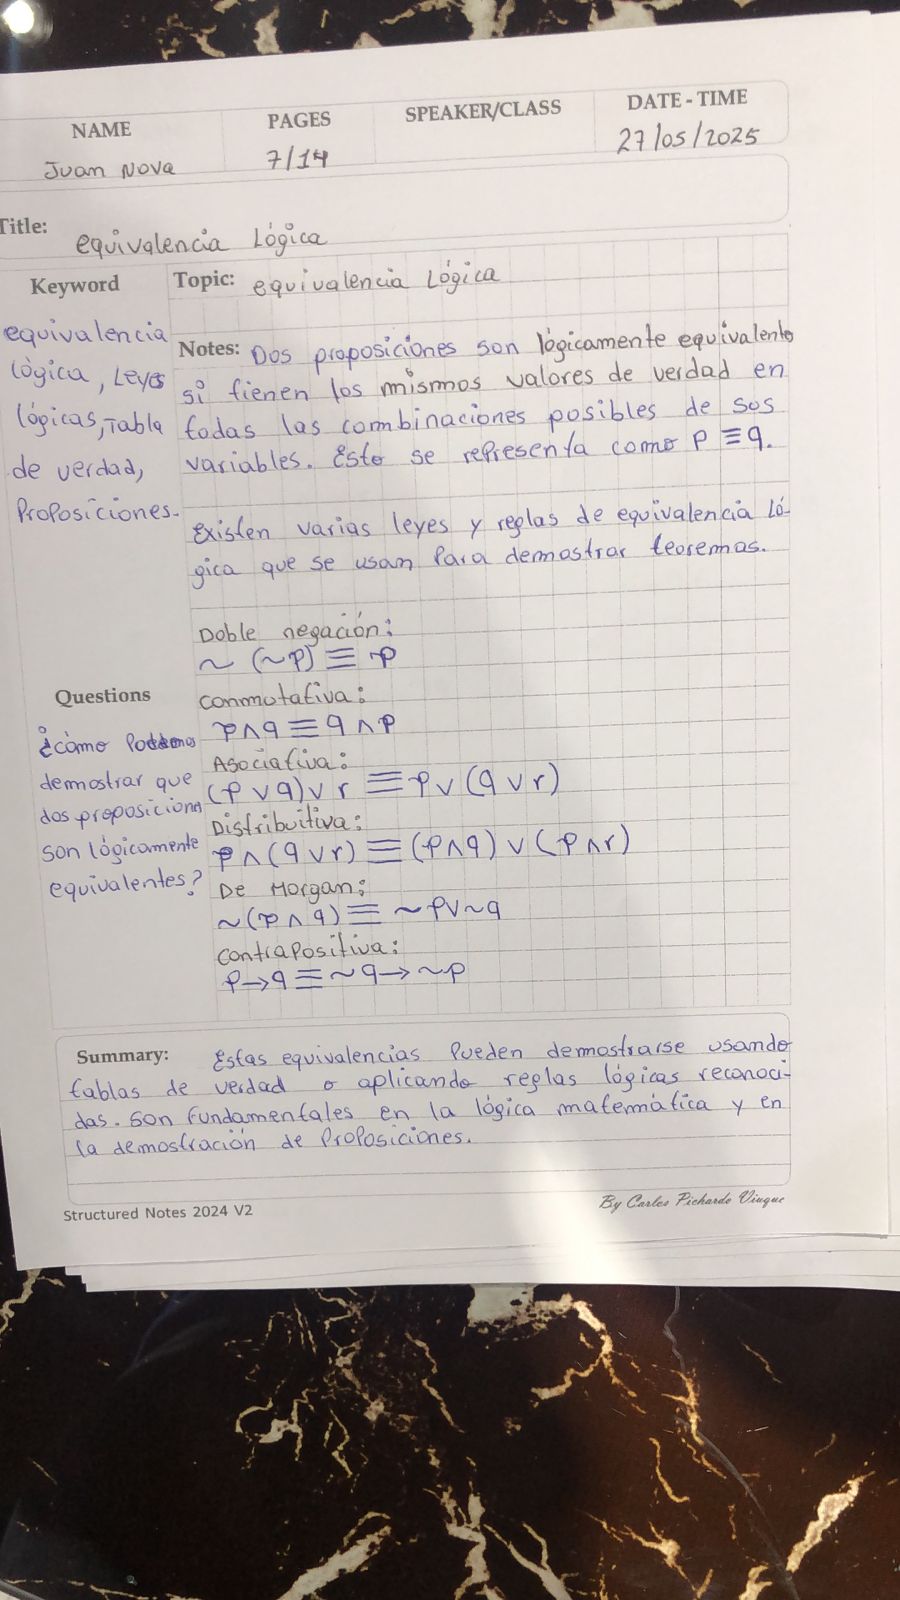 NAME
PAGES
SPEAKER/CLASS
DATE - TIME
Juan Nova
7/14
27/05/2025
Title:
equivalencia Lógica
Keyword
equivalencia
lógica, Leyes
lógicas, Tabla
de verdad,
Proposiciones.
Topic: equivalencia Lógica
Notes: Dos proposiciones son lógicamente equivalente
si tienen los mismos valores de verdad en
todas las combinaciones posibles de sus
variables. Esto se representa como P ≡ q.
Existen varias leyes y reglas de equivalencia Ló-
gica que se usan Para demostrar teoremas.
Doble negación:
~ (~P) ≡ P
Conmutativa:
p∧q ≡ q∧p
Asociativa:
(p∨q)∨r ≡ p∨(q∨r)
Distribuitiva:
p∧(q∨r) ≡ (p∧q)∨(p∧r)
De Morgan:
~(p∧q) ≡ ~p∨~q
Contrapositiva:
p→q ≡ ~q→~p
Questions
¿Cómo
demostrar que
dos proposicione
son lógicamente
equivalentes?
Summary: Estas equivalencias Pueden demostrarse usando
tablas de verdad o aplicando reglas lógicas reconoci-
das. Son Fundamentales en la lógica matemática y en
la demostración de Proposiciones.
Structured Notes 2024 V2
By Carlos Pichardo Viuque